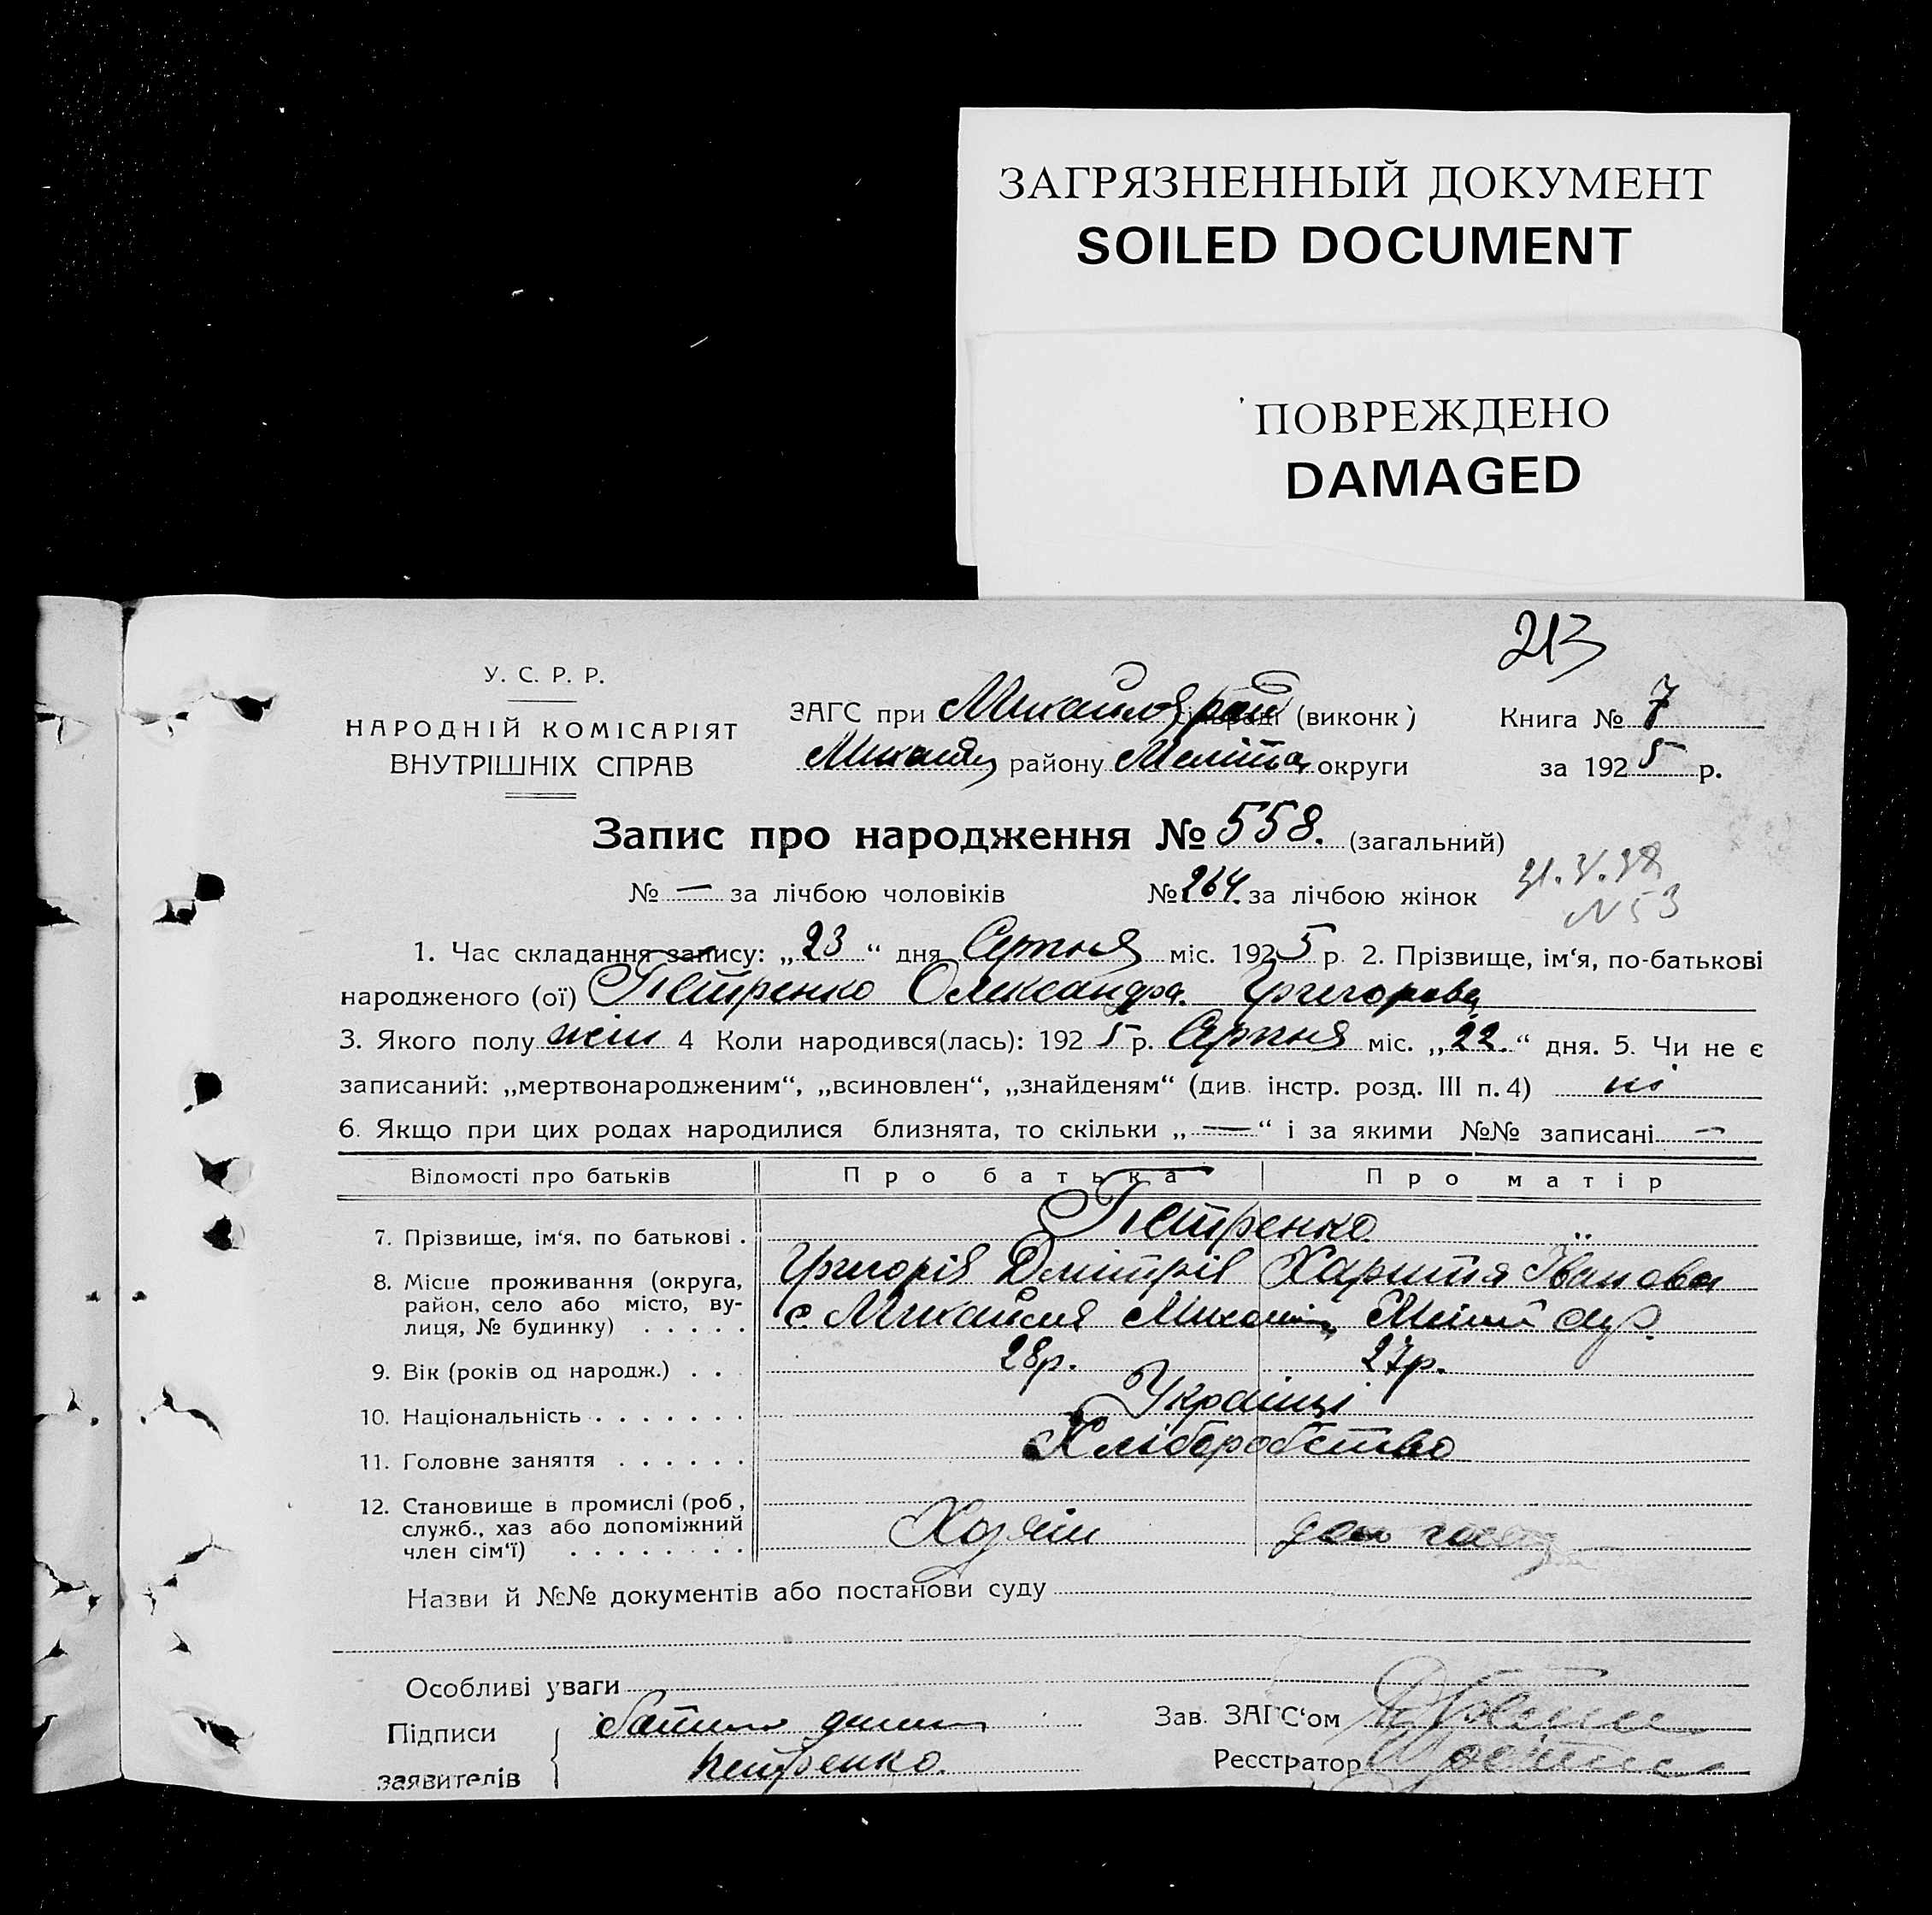 ЗАГРЯЗНЕННЫЙ ДОКУМЕНТ
SOILED DOCUMENT
ПОВРЕЖДЕНО
DAMAGED
213
У. С. Р. Р.
НАРОДНІЙ КОМІСАРІЯТ
ВНУТРІШНІХ СПРАВ
ЗАГС при сільраді (виконк) Книга № 7
району Меліто округи за 1925 р.
Запис про народження № 558. (загальний)
№ — за лічбою чоловіків № 264. за лічбою жінок
N 53
1. Час складання запису: „23“ дня Серпня міс. 1925 р. 2. Прізвище, ім‘я, по-батькові
народженого (ої) Петренко Олександра Григорова
3. Якого полу жін 4 Коли народився(лась): 1925 р. Серпня міс. „22.“ дня. 5. Чи не є
записаний: „мертвонародженим“, „всиновлен“, „знайденям“ (див. інстр. розд. III п. 4) ні
6. Якщо при цих родах народилися близнята, то скільки „—“ і за якими №№ записані —
Відомості про батьків Про батька Про матір
7. Прізвище, ім‘я, по батькові . Петренко
Григорій Дмітрів Харитя Іванова
8. Місце проживання (округа,
район, село або місто, ву-
лиця, № будинку) . . . . . с.
9. Вік (років од народж.) . . 28р. 27р.
10. Національність . . . . . . . Українці
11. Головне заняття . . . . . . Хліборобство
12. Становище в промислі (роб,
служб., хаз або допоміжний
член сім‘ї) . . . . . . . . Хозяїн
Назви й №№ документів або постанови суду
Особливі уваги
Підписи
заявителів Петренко
Зав. ЗАГС‘ом
Реєстратор